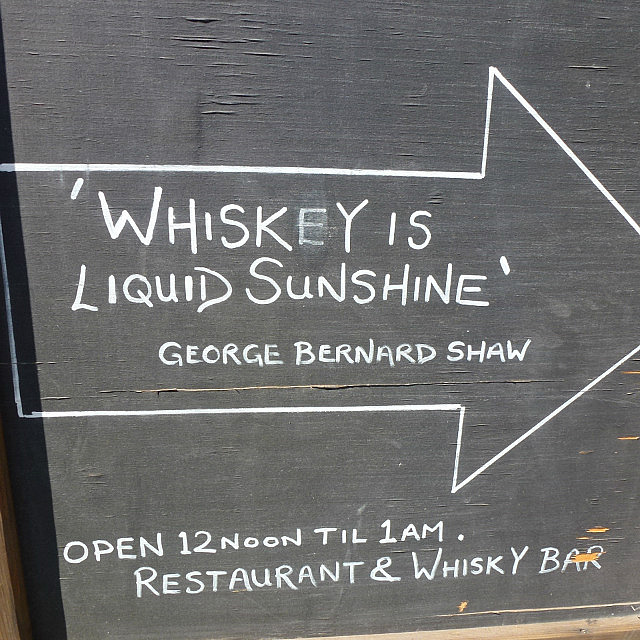 'WHISKEY IS
LIQUID SUNSHINE'
GEORGE BERNARD SHAW
OPEN 12 NOON TIL 1AM.
RESTAURANT & WHISKY BAR